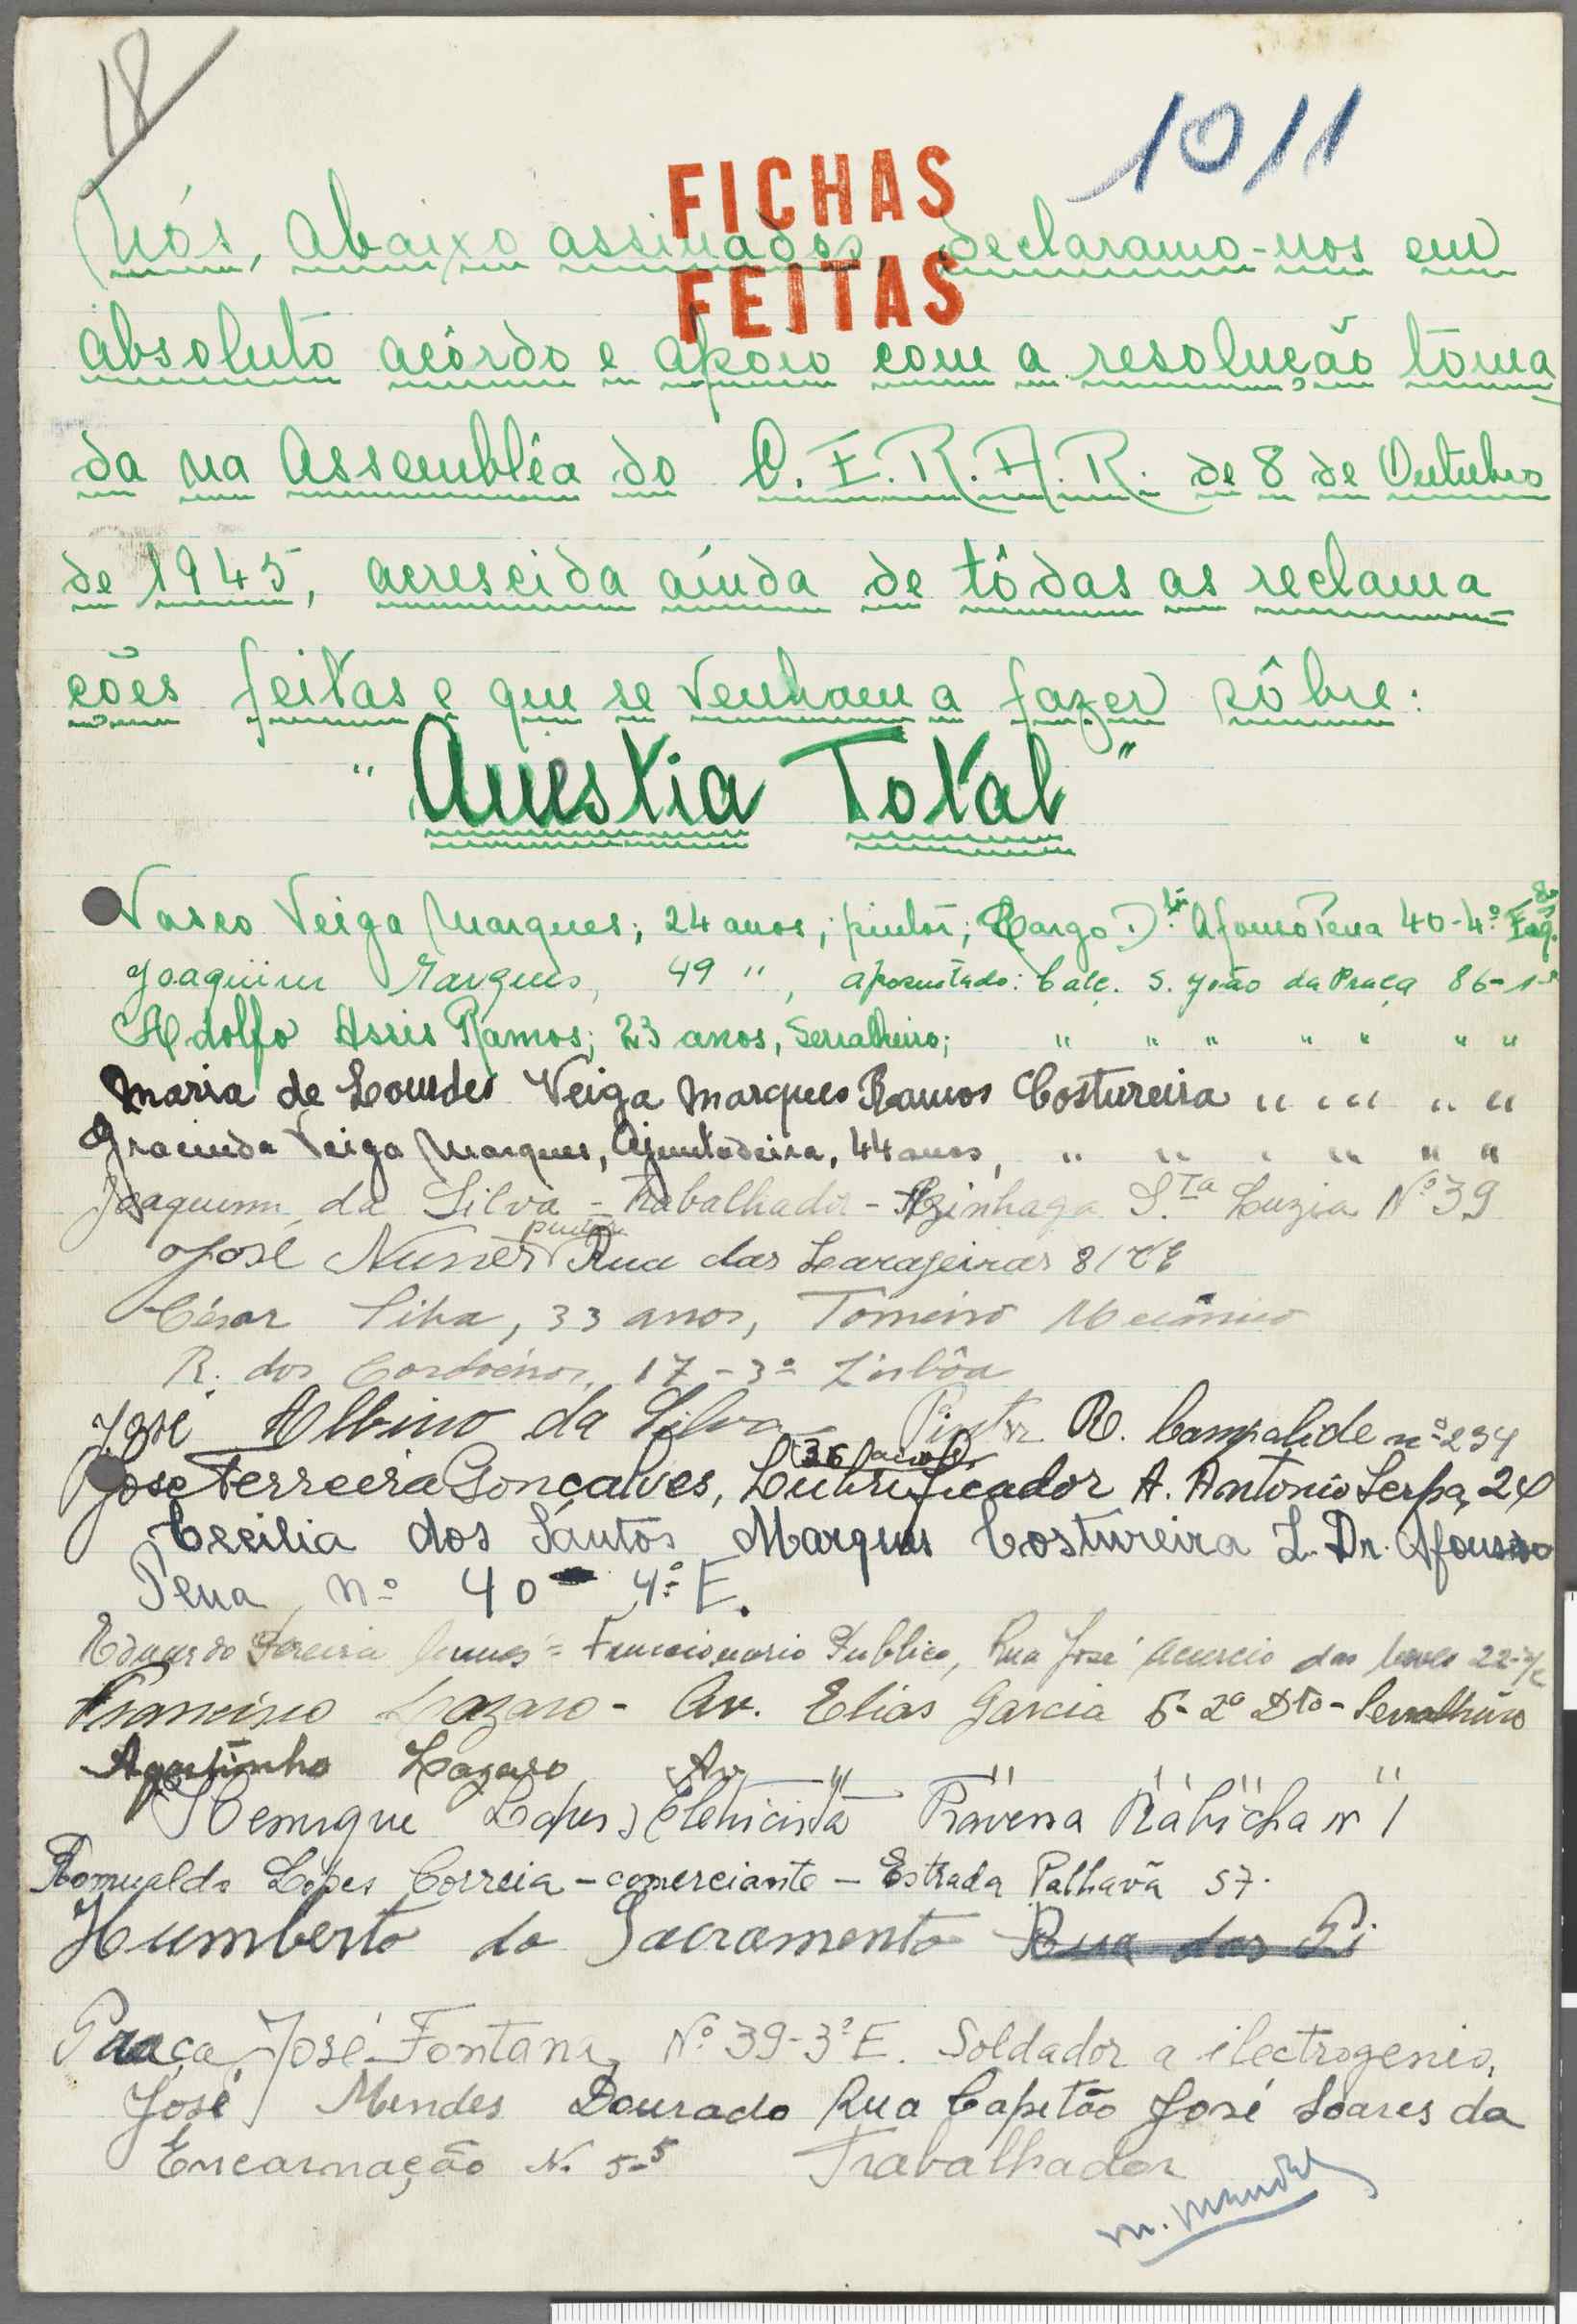 18
1011
FICHAS
FEITAS
Nós, abaixo assinados, declaramo-nos em
absoluto acôrdo e apoio com a resolução tôma
da na Assemblêa do C.E.R.A.R. de 8 de Outubro
de 1945, acrescida aínda de tôdas as reclama
ções feitas e que se venham a fazer sôbre:
"Amnistia Total"
Vasco Veiga Marques; 24 anos; pintor; Largo Dr. Afonso Pena 40-4º Esq.
Joaquim Marques, 49 ", aposentado: Calç. S. João da Praça 86-1º
Adolfo Assis Ramos; 23 anos, Serralheiro; " " " " " " "
Maria de Lourdes Veiga Marques Ramos Costureira " " " " "
Gracinda Veiga Marques, Ajuntadeira, 44 anos, " " " " " "
Joaquim da Silva - Trabalhador - Azinhaga S.ta Luzia Nº 39
José Nunes pintor Rua das Larageiras 81
César Silva, 33 anos, Torneiro Mecânico
R. dos Cordoeiros, 17-3º Lisbôa
José Albino da Silva Pintor R. Campolide nº 234
José Ferreira Gonçalves, 36 anos Lubrificador A. Antonio Serpa, 24
Cecilia dos Santos Marques Costureira L. Dr. Afonso
Pena nº 40 - 4º E.
Eduardo Pereira = Funcionario Publico, Rua José Acurcio das Neves 22
Francisco Lazaro - Av. Elias Garcia 6-2º Dto - Serralheiro
Agostinho Lazaro Av. " " " " "
Henrique Lopes, Eletricista Travessa Rabicha nº 1
Romualdo Lopes Correia - comerciante - Estrada Palhavã 57.
Humberto do Sacramento Rua das Pi
Praça José Fontana, Nº 39-3º E. Soldador a ilectrogenio,
José Mendes Dourado Rua Capitão José Soares da
Encarnação N. 5-5 Trabalhador
M. Mendes